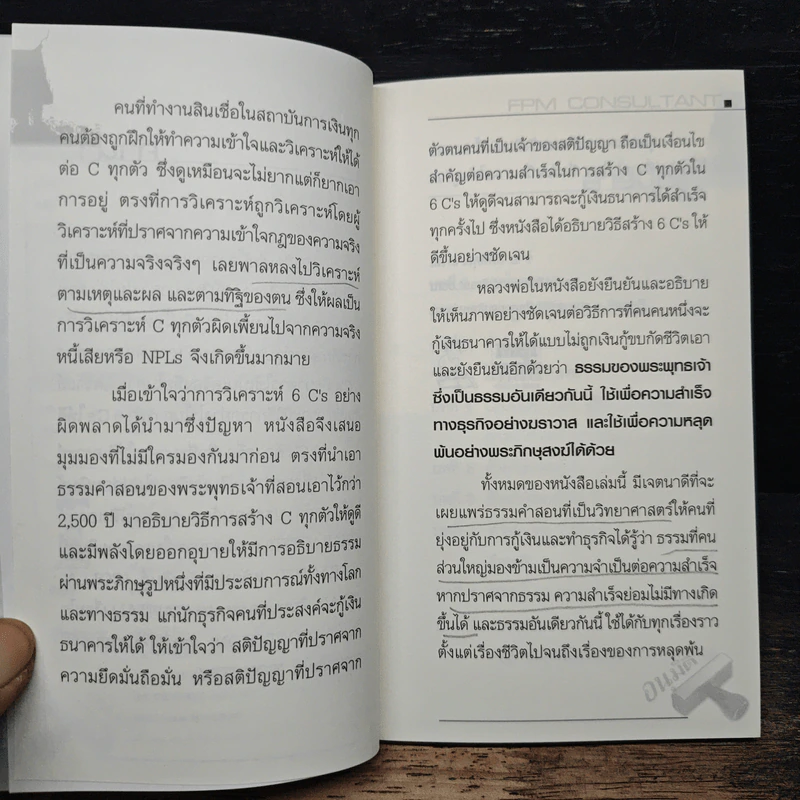 คนที่ทำงานสินเชื่อในสถาบันการเงินทุก
คนต้องถูกฝึกให้ทำความเข้าใจและวิเคราะห์ให้ได้
ต่อ C ทุกตัว ซึ่งดูเหมือนจะไม่ยากแต่ก็ยากเอา
การอยู่ ตรงที่การวิเคราะห์ถูกวิเคราะห์โดยผู้
วิเคราะห์ที่ปราศจากความเข้าใจกฎของความจริง
ที่เป็นความจริงจริงๆ เลยพาลหลงไปวิเคราะห์
ตามเหตุและผล และตามทิฐิของตน ซึ่งให้ผลเป็น
การวิเคราะห์ C ทุกตัวผิดเพี้ยนไปจากความจริง
หนี้เสียหรือ NPLs จึงเกิดขึ้นมากมาย
เมื่อเข้าใจว่าการวิเคราะห์ 6 C's อย่าง
ผิดพลาดได้นำมาซึ่งปัญหา หนังสือจึงเสนอ
มุมมองที่ไม่มีใครมองกันมาก่อน ตรงที่นำเอา
ธรรมคำสอนของพระพุทธเจ้าที่สอนเอาไว้กว่า
2,500 ปี มาอธิบายวิธีการสร้าง C ทุกตัวให้ดูดี
และมีพลังโดยออกอุบายให้มีการอธิบายธรรม
ผ่านพระภิกษุรูปหนึ่งที่มีประสบการณ์ทั้งทางโลก
และทางธรรม แก่นักธุรกิจคนที่ประสงค์จะกู้เงิน
ธนาคารให้ได้ ให้เข้าใจว่า สติปัญญาที่ปราศจาก
ความยึดมั่นถือมั่น หรือสติปัญญาที่ปราศจาก
FPM CONSULTANT
ตัวตนคนที่เป็นเจ้าของสติปัญญา ถือเป็นเงื่อนไข
สำคัญต่อความสำเร็จในการสร้าง C ทุกตัวใน
6 C's ให้ดูดีจนสามารถจะกู้เงินธนาคารได้สำเร็จ
ทุกครั้งไป ซึ่งหนังสือได้อธิบายวิธีสร้าง 6 C's ให้
ดีขึ้นอย่างชัดเจน
หลวงพ่อในหนังสือยังยืนยันและอธิบาย
ให้เห็นภาพอย่างชัดเจนต่อวิธีการที่คนคนหนึ่งจะ
กู้เงินธนาคารให้ได้แบบไม่ถูกเงินกู้ขบกัดชีวิตเอา
และยังยืนยันอีกด้วยว่า ธรรมของพระพุทธเจ้า
ซึ่งเป็นธรรมอันเดียวกันนี้ ใช้เพื่อความสำเร็จ
ทางธุรกิจอย่างฆราวาส และใช้เพื่อความหลุด
พ้นอย่างพระภิกษุสงฆ์ได้ด้วย
ทั้งหมดของหนังสือเล่มนี้ มีเจตนาดีที่จะ
เผยแพร่ธรรมคำสอนที่เป็นวิทยาศาสตร์ให้คนที่
ยุ่งอยู่กับการกู้เงินและทำธุรกิจได้รู้ว่า ธรรมที่คน
ส่วนใหญ่มองข้ามเป็นความจำเป็นต่อความสำเร็จ
หากปราศจากธรรม ความสำเร็จย่อมไม่มีทางเกิด
ขึ้นได้ และธรรมอันเดียวกันนี้ ใช้ได้กับทุกเรื่องราว
ตั้งแต่เรื่องชีวิตไปจนถึงเรื่องของการหลุดพ้น
อนุมัติ